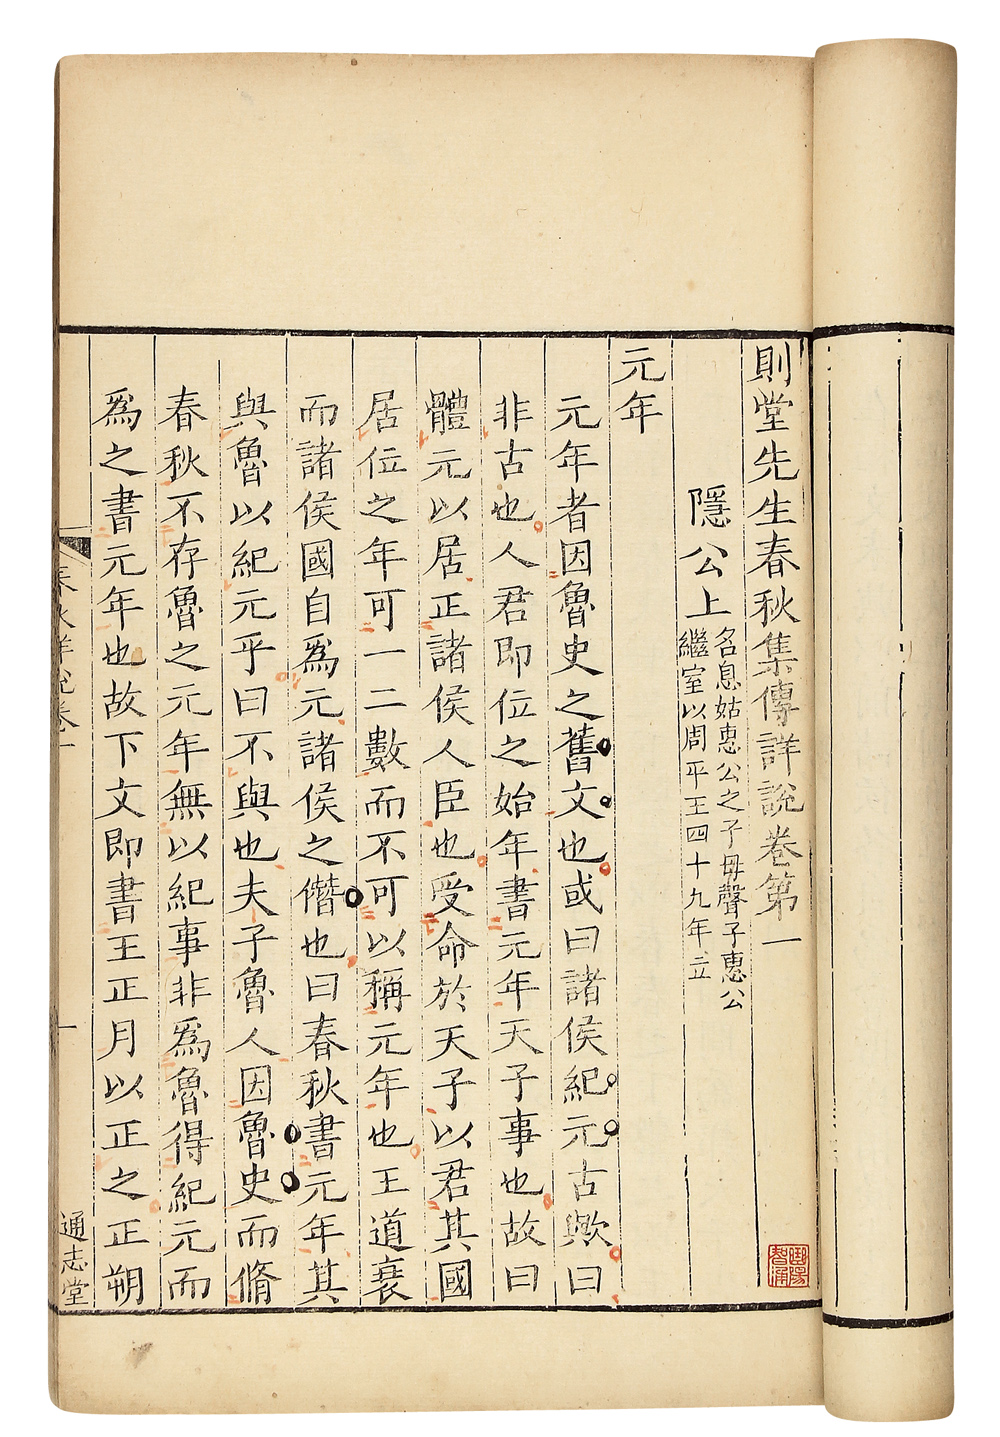 則堂先生春秋集傳詳說卷第一
隱公上
名息姑惠公之子母聲子惠公
繼室以周平王四十九年立
元年
元年者因魯史之舊文也或曰諸侯紀元古歟曰
非古也人君即位之始年書元年天子事也故曰
體元以居正諸侯人臣也受命於天子以君其國
居位之年可一二數而不可以稱元年也王道衰
而諸侯國自為元諸侯之僭也曰春秋書元年其
與魯以紀元乎曰不與也夫子魯人因魯史而脩
春秋不存魯之元年無以紀事非為魯得紀元而
為之書元年也故下文即書王正月以正之正朔
春秋詳說卷一
一
通志堂